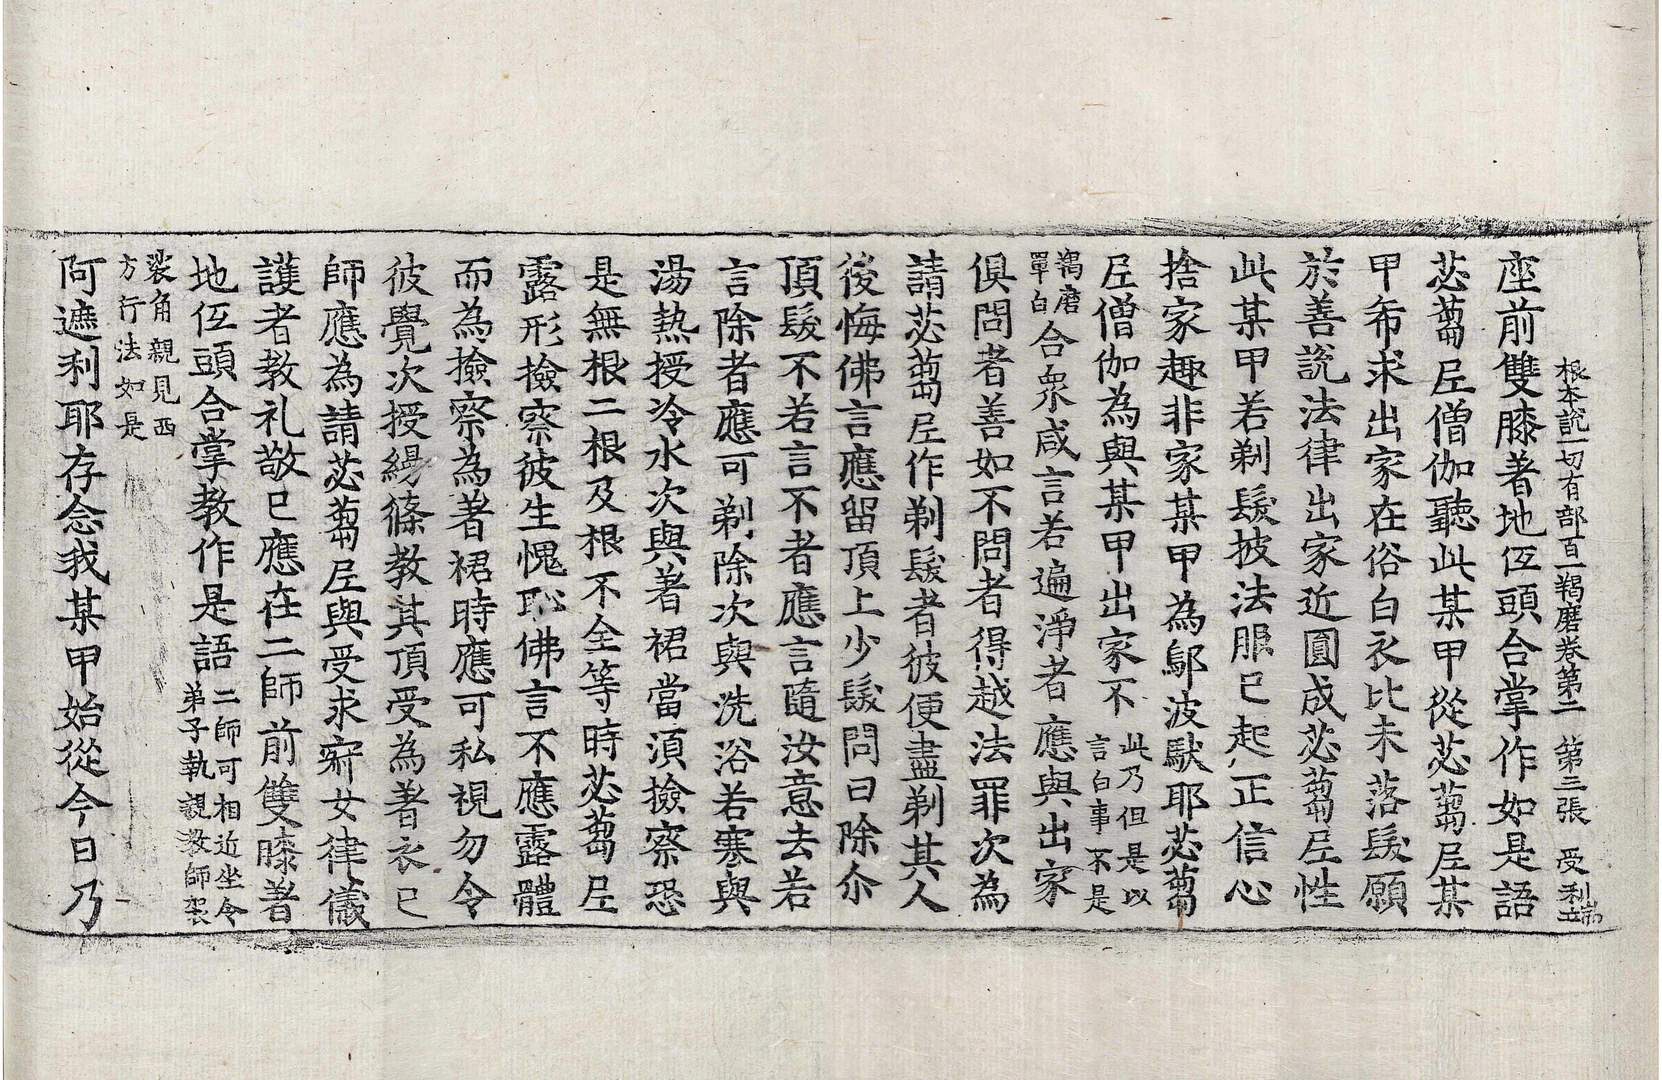 根本說一切有部百一羯磨卷第二 第三張 受
座前雙膝著地伍頭合掌作如是語
苾蒭尼僧伽聽此某甲從苾蒭尼某
甲希求出家在俗白衣比未落髮願
於善說法律出家近圓成苾蒭尼性
此某甲若剃髮披法服已起正信心
捨家趣非家某甲為鄔波馱耶苾蒭
尼僧伽為與某甲出家不此乃但是以言白事不是
羯磨單白合衆咸言若遍淨者應與出家
俱問者善如不問者得越法罪次為
請苾蒭尼作剃髮者彼便盡剃其人
後悔佛言應留頂上少髮問曰除尒
頂髮不若言不者應言隨汝意去若
言除者應可剃除次與洗浴若寒與
湯熱授冷水次與著裙當湏撿察恐
是無根二根及根不全等時苾蒭尼
露形撿察彼生愧恥佛言不應露體
而為撿察為著裙時應可私視勿令
彼覺次授縵絛教其頂受為著衣已
師應為請苾蒭尼與受求寂女律儀
護者教礼敬已應在二師前雙膝著
地伍頭合掌教作是語二師可相近坐令弟子執親教師袈
裟角親見西方行法如是
阿遮利耶存念我某甲始從今日乃